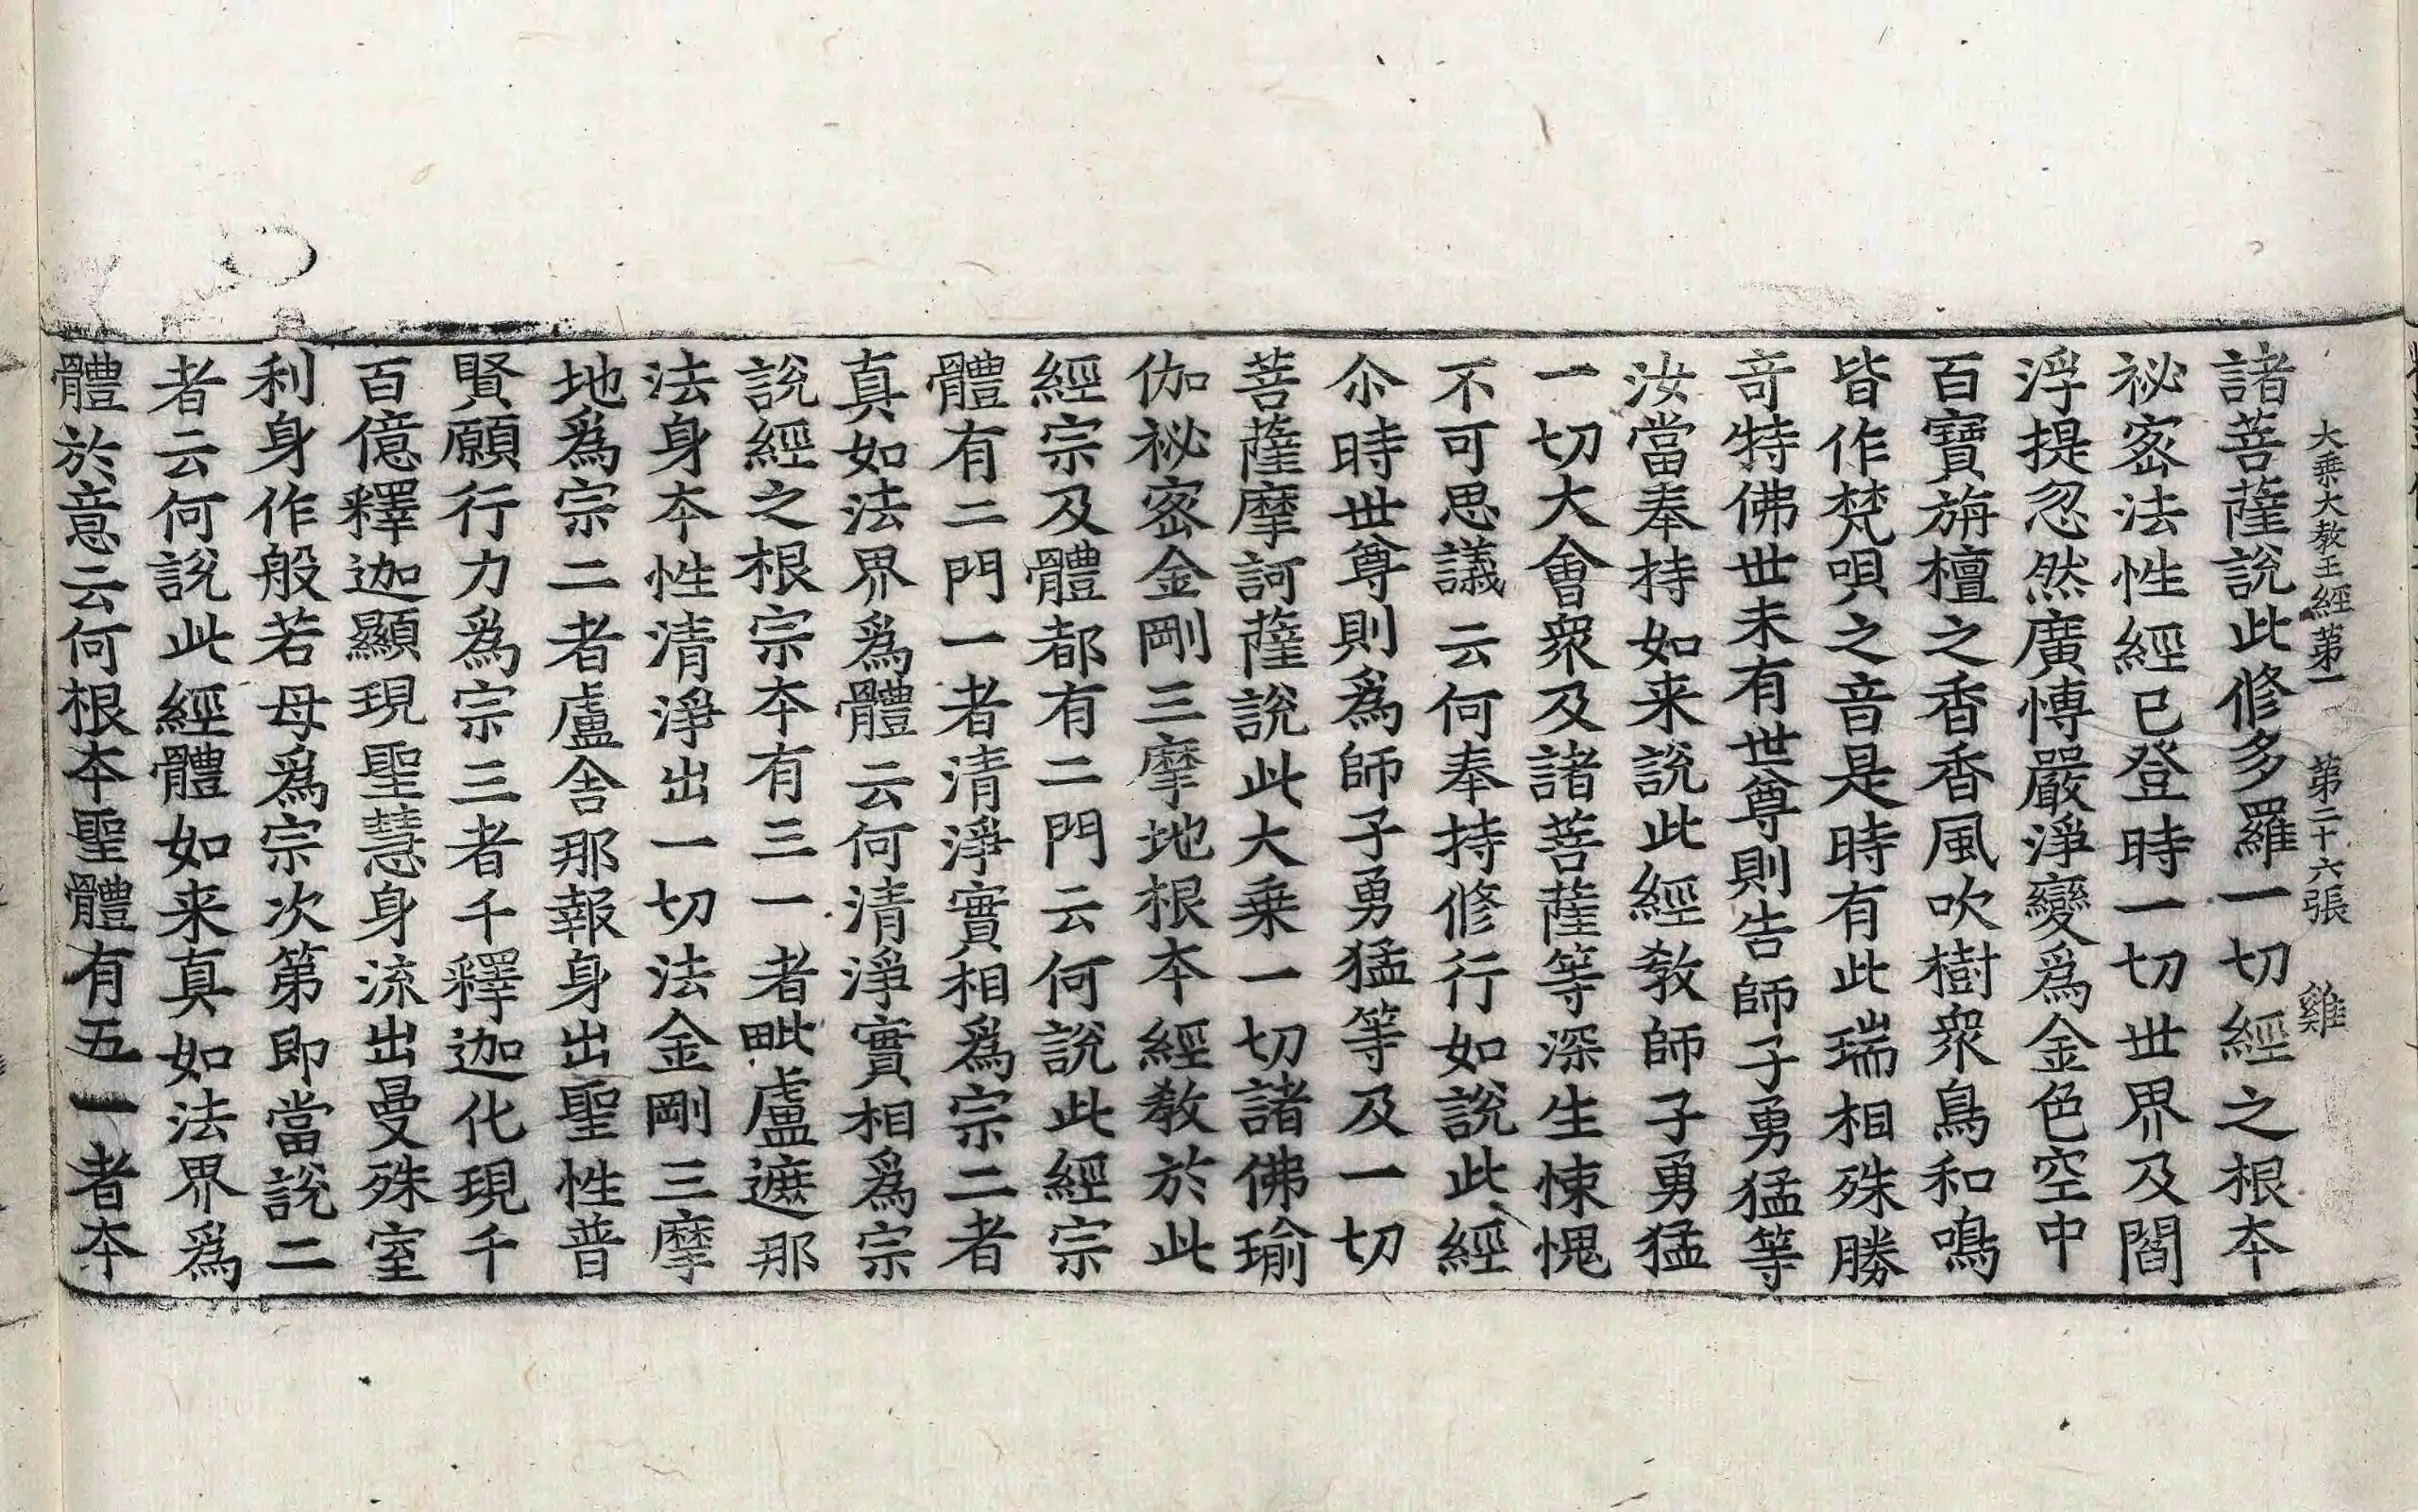 大乗大教王經第一 第二十六張 雞
諸菩薩說此修多羅一切經之根本
祕密法性經已登時一切世界及閻
浮提忽然廣愽嚴淨變爲金色空中
百寶旃檀之香香風吹樹衆鳥和鳴
皆作梵唄之音是時有此瑞相殊勝
竒特佛世未有世尊則告師子勇猛等
汝當奉持如来說此經教師子勇猛
一切大會衆及諸菩薩等深生悚愧
不可思議云何奉持修行如說此經
尒時世尊則爲師子勇猛等及一切
菩薩摩訶薩說此大乗一切諸佛瑜
伽祕密金剛三摩地根本經教於此
經宗及體都有二門云何說此經宗
體有二門一者清淨實相爲宗二者
真如法界爲體云何清淨實相爲宗
說經之根宗本有三一者毗盧遮那
法身本性清淨出一切法金剛三摩
地爲宗二者盧舍那報身出聖性普
賢願行力爲宗三者千釋迦化現千
百億釋迦顯現聖慧身流出曼殊室
利身作般若母爲宗次第即當說二
者云何說此經體如来真如法界爲
體於意云何根本聖體有五一者本